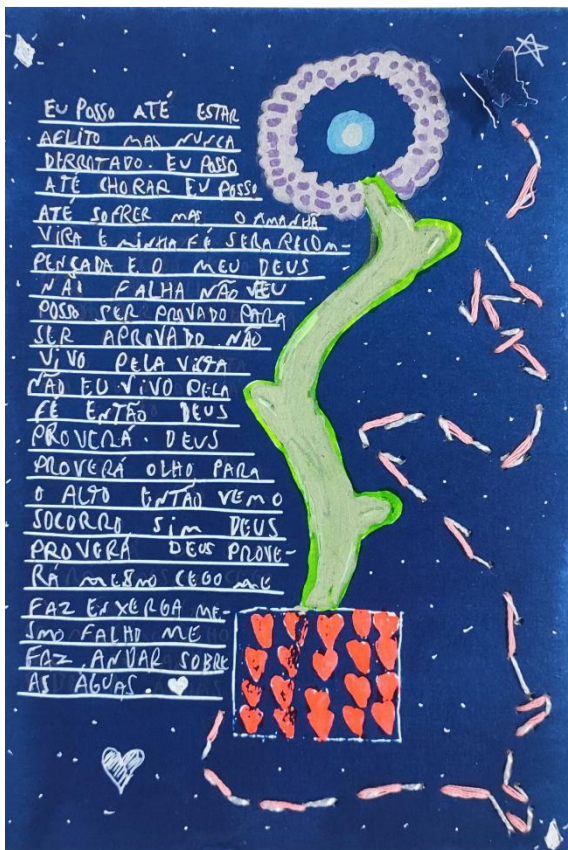 EU POSSO ATÉ ESTAR
AFLITO MAS NUNCA
DERROTADO. EU POSSO
ATÉ CHORAR EU POSSO
ATÉ SOFRER MAS O AMANHÃ
VIRA E MINHA FÉ SERA RECOM-
PENÇADA E O MEU DEUS
NÃO FALHA NÃO EU
POSSO SER PROVADO PARA
SER APROVADO NÃO
VIVO PELA VISTA
NÃO EU VIVO PELA
FÉ ENTÃO DEUS
PROVERÁ. DEUS
PROVERÁ OLHO PARA
O ALTO ENTÃO VEM O
SOCORRO SIM DEUS
PROVERÁ DEUS PROVE-
RÁ MESMO CEGO ME
FAZ ENXERGA ME
SMO FALHO ME
FAZ ANDAR SOBRE
AS ÁGUAS.